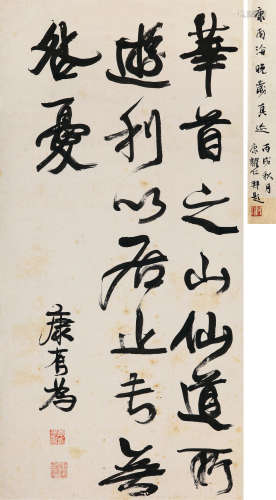 康南海晚歲真迹
丙戌秋月
康耀仁拜題
華首之山仙道所
遊利以居止長無
咎憂
康有為